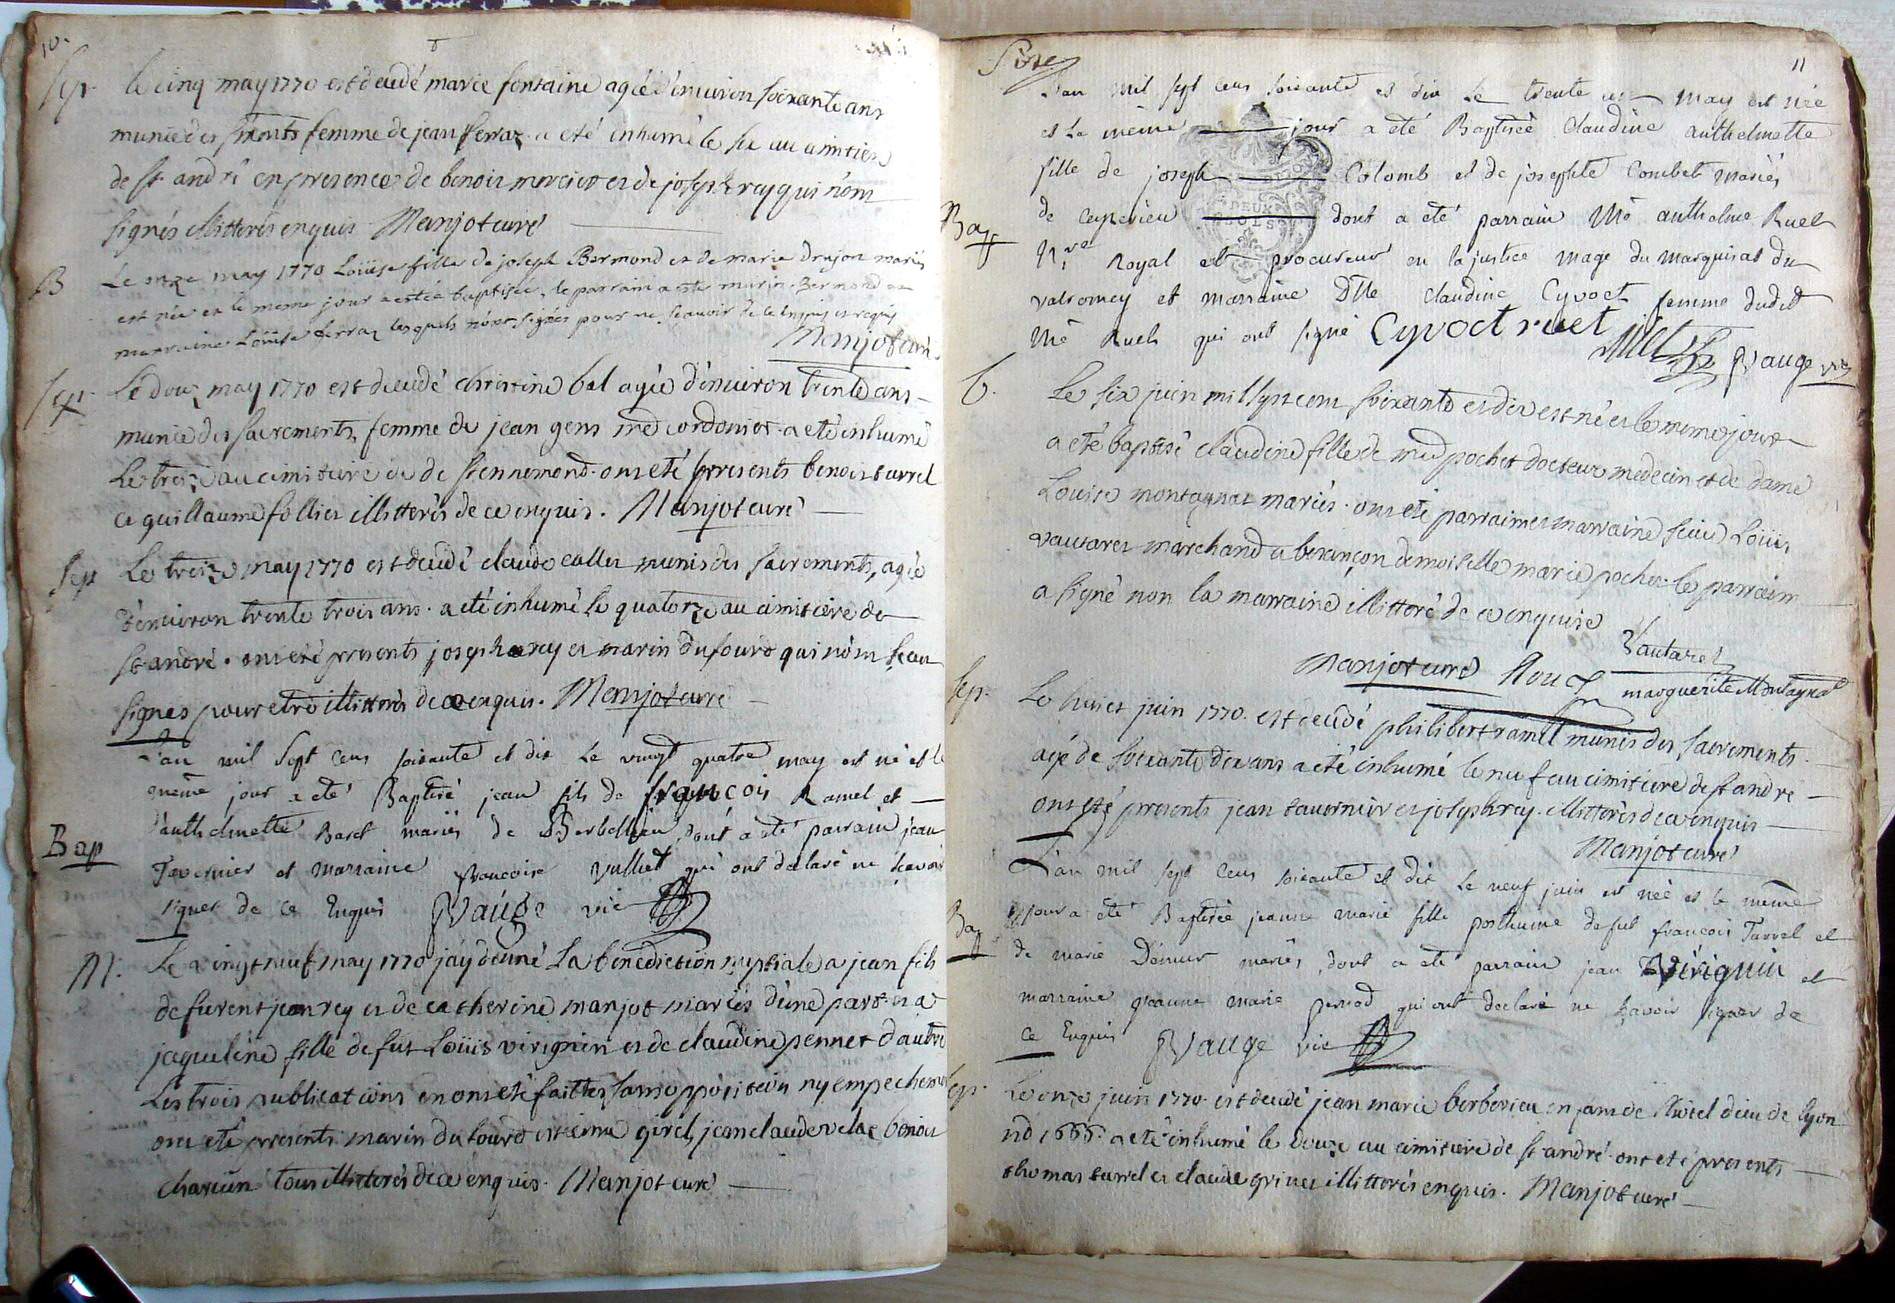 10.
Sep. le cinq may 1770 est decedé marie fontaine agée d'environ soixante ans
munie des srments femme de jean ferraz a eté inhumé le six au cimitiere
de st andré en presence de benoit mercier et de joseph rey qui n'ont
signés illitterés enquis Manjot curé
B Le onze may 1770 Loüise fille de joseph Bermond et de marie drajon mariés
est née et le meme jour a estée baptisée, le parrain a este marin Bermond la
marraine Loüise ferraz lesquels n'ont signés pour ne scavoir de le enquis et requis
Manjot curé
Sep. Le douz may 1770 est decedé christine bal agée d'environ trente ans
munie des sacrements, femme de jean gens cordonier a eté inhumé
Le treize au cimitiere de st ennemond. ont eté presents benoit turrel
et guillaume follier illitterés de ce enquis. Manjot curé
Sep Le treize may 1770 est decedé claude callet munis des sacrements, agée
d'environ trente trois ans. a eté inhumé le quatorze au cimitiere de
st andré. ont eté presents joseph rey et marin dufourd qui n'ont sceu
signes pour etre illitterés de ce enquis. Manjot curé
L'an mil sept cens soixante et dix Le vingt quatre may est né et le
même jour a eté Baptisé jean fils de françois Ramel et
Bap d'anthelmette Baret mariés de Berbellieu, dont a eté parrain jean
Tavernier et marraine françoise vulliet qui ont déclaré ne scavoir
signer de ce Enquis JVaugé vic
M. Le vingt neuf may 1770 j'ay donné La benediction nuptiale a jean fils
de furent jean rey et de catherine manjot mariés d'une part. et a
jaqueline fille de fut Loüis virignin et de claudine pennet d'autre
Les trois publications en ont eté faittes, sans opposition ny empechemen
ont eté presents. marin du fourd etienne girel, jean claude velat benoit
charcun tous illitterés de ce enquis. Manjot curé
11
L'an mil sept cens soixante et dix Le trente un may est née
et Le même jour a eté Baptisée Claudine anthelmette
fille de joseph Colomb et de josephte Combet mariés
Bap de ceyserieu dont a eté parrain Me anthelme Ruel
Nre Royal et procureur en la justice mage du Marquisat du
valromey et marraine Dlle Claudine Cyvoct femme dudit
Me Ruel qui ont signé Cyvoct ruet JVaugé vic
b. Le six juin mil sept cent soixante et dix est né et le meme jour
a eté baptisé claudine fille de pochet docteur medecin et de dame
Louise montagnat mariés. ont eté parrain et marraine sieur Loüis
vautaret marchand a besançon demoiselle marie pochet. le parrain
a signé non la marraine illitteré de ce enquise
Vautaret
Manjot curé Roux marguerite Montagnat
Sep. Le huict juin 1770. est decedé philibert ramel munis des sacrements.
agé de soixante dix ans a eté inhumé le neuf au cimitiere de st andre
ont eté presents jean tavernier et joseph rey. illitterés de ce enquis
Manjot curé
L'an mil sept cens soixante et dix Le neuf juin est née et le même
Bap jour a eté Baptisée jeanne marie fille posthume de fut françois Turrel et
de marie Demeur mariés, dont a eté parrain jean Virignin et
marraine jeanne marie pernod qui ont déclaré ne scavoir signer de
ce Enquis JVaugé vic
Sep. Le onze juin 1770. est decedé jean marie berberieu enfant de l'hotel dieu de lyon
no 1666. a eté inhumé le douze au cimitiere de st andré. ont eté presents
thomas turrel et claude grinet illitterés enquis. Manjot curé